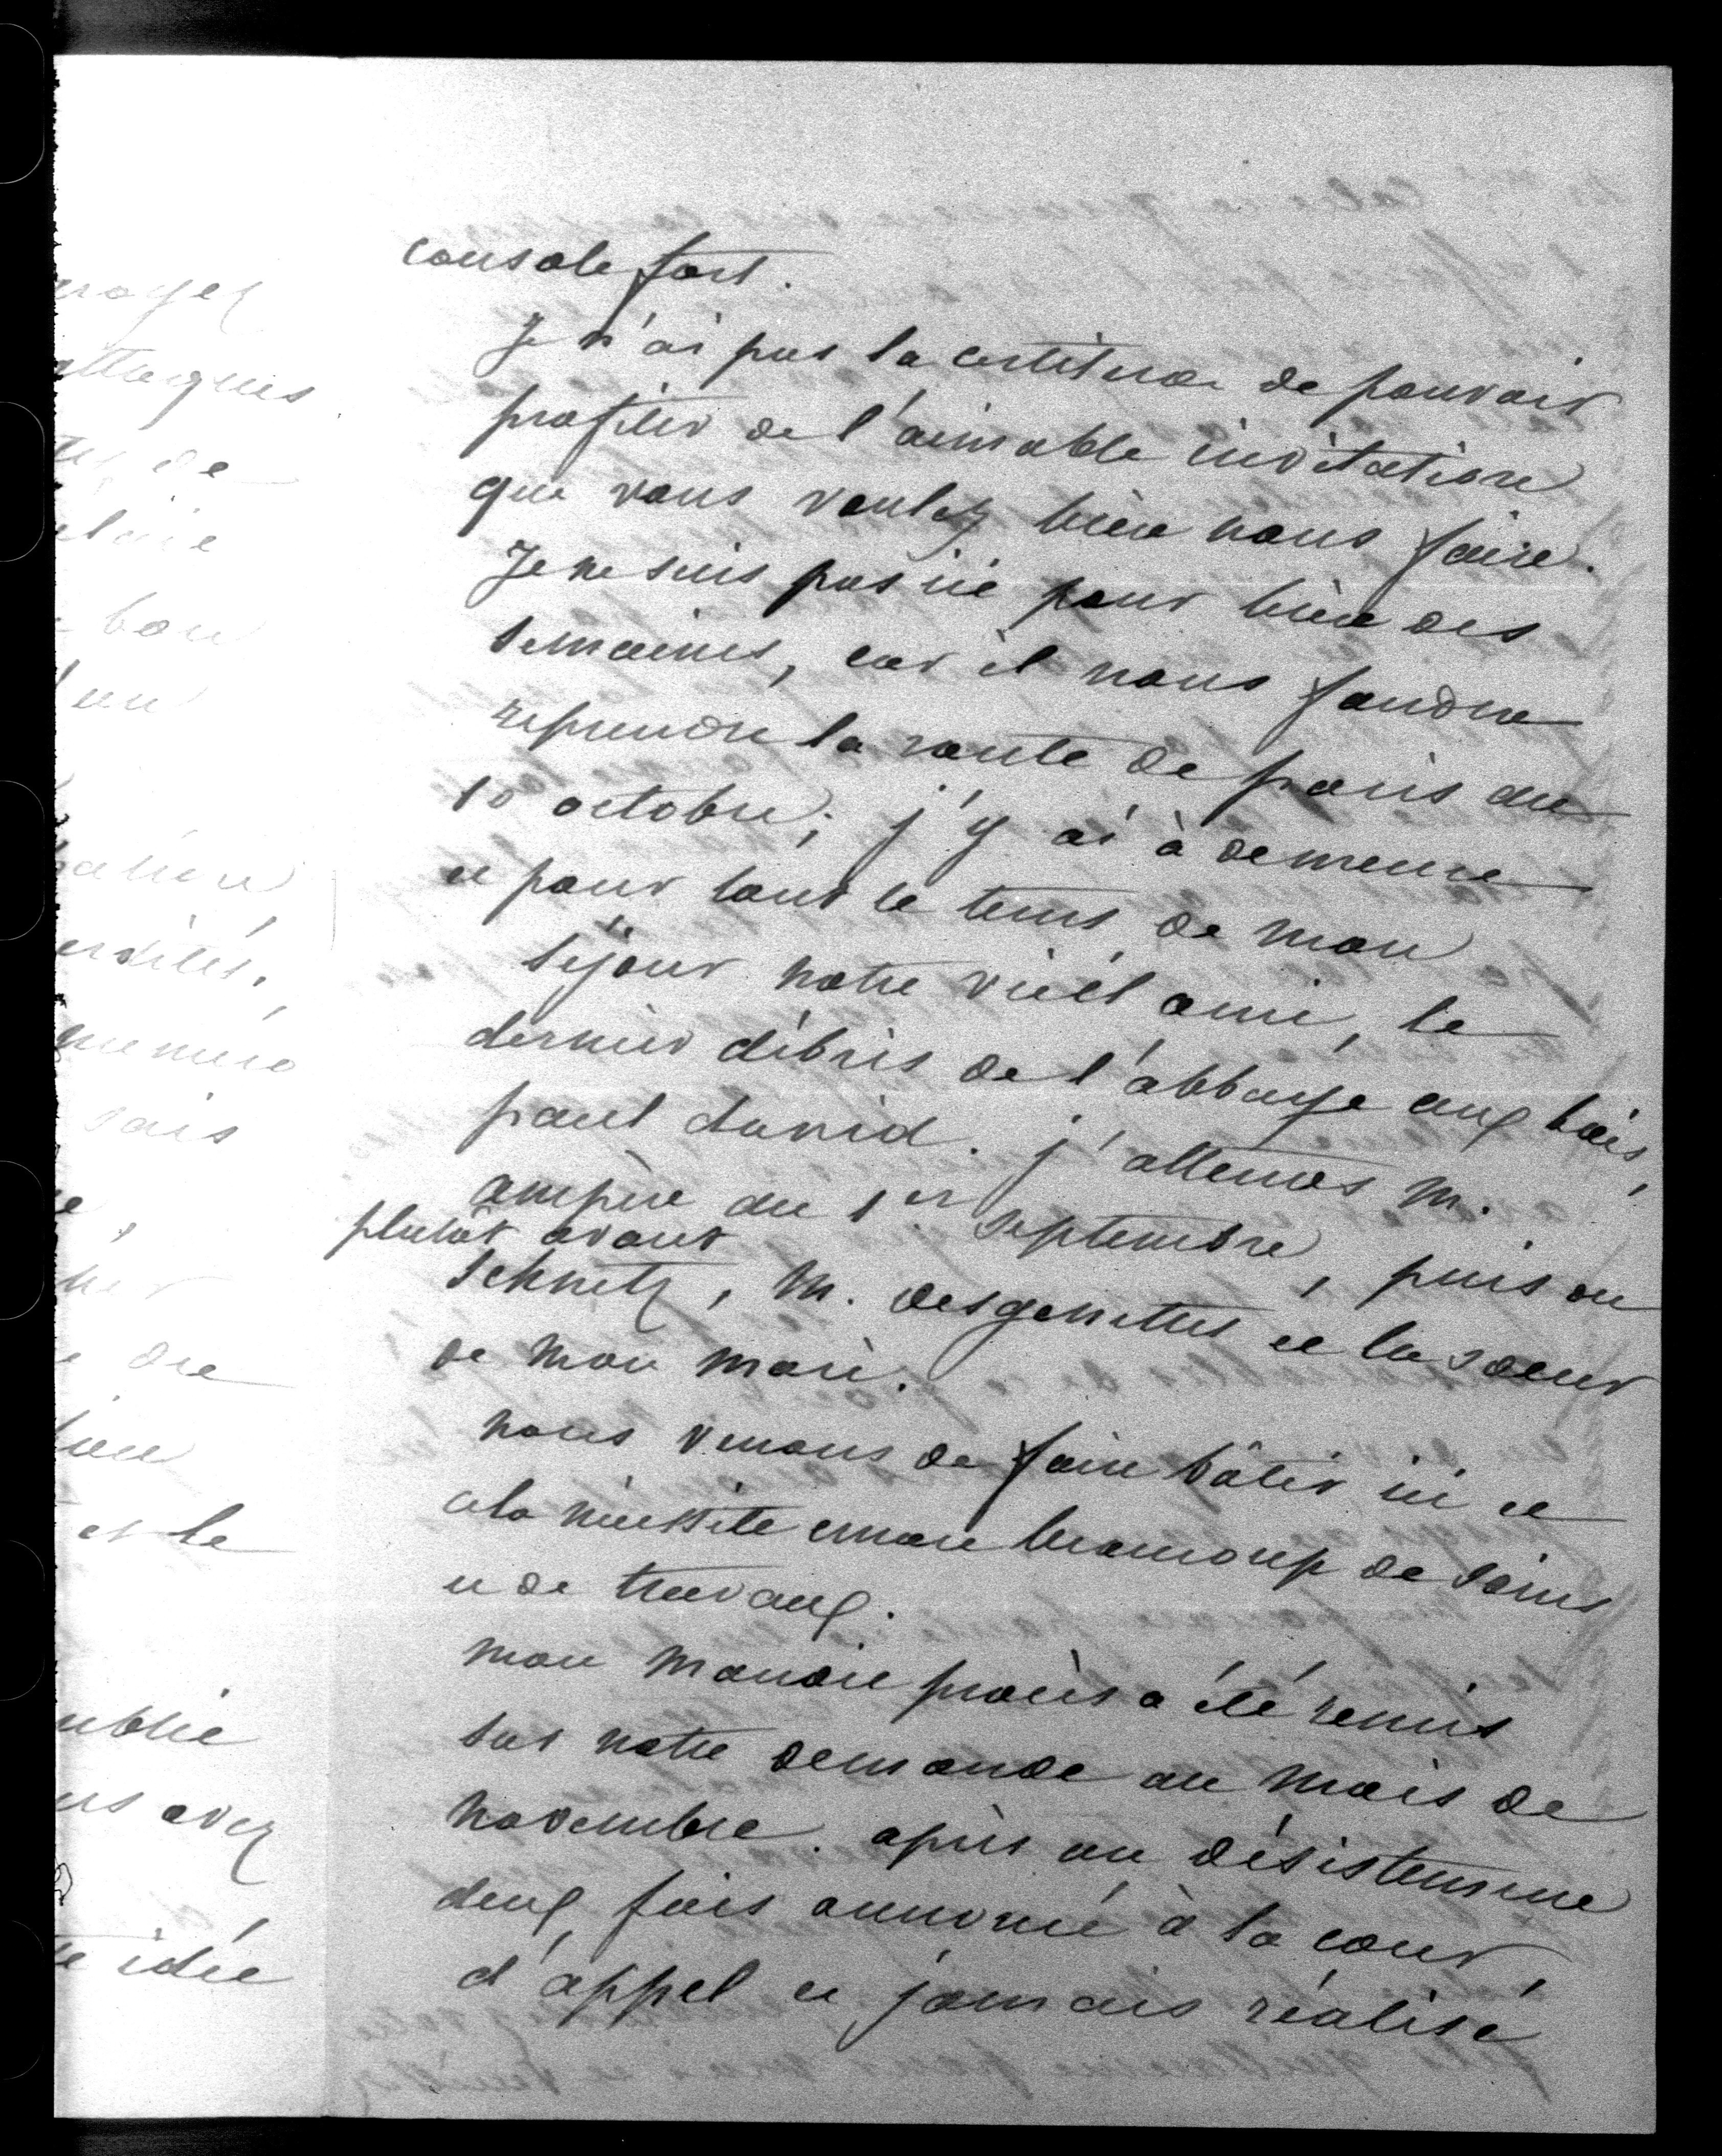 console fort.
Je n'ai pas la certitude de pouvoir
profiter de l'aimable invitation
que vous voulez bien nous faire.
Je ne suis pas ici pour bien des
semaines, car il nous faudra
reprendre la route de paris au
10 octobre; j'y ai à demeure
et pour tout le tems de mon
séjour notre vieil ami, le
dernier débris de l'abbaye aux bois,
paul david. j'attends M.
ampère au 1er septembre, puis ou
plutôt avant
Schnetz, M. desgenettes et la soeur
de mon mari.
nous venons de faire bâtir ici et
cela nécessite encore beaucoup de soins
et de travaux.
mon maudit procès a été remis
sur notre demande au mois de
novembre. après un désistement
deux fois annoncé à la cour
d'appel et jamais réalisé
royez
attaques
de
bon
un
ation
sais
de
et le
ublié
us avez
te idée